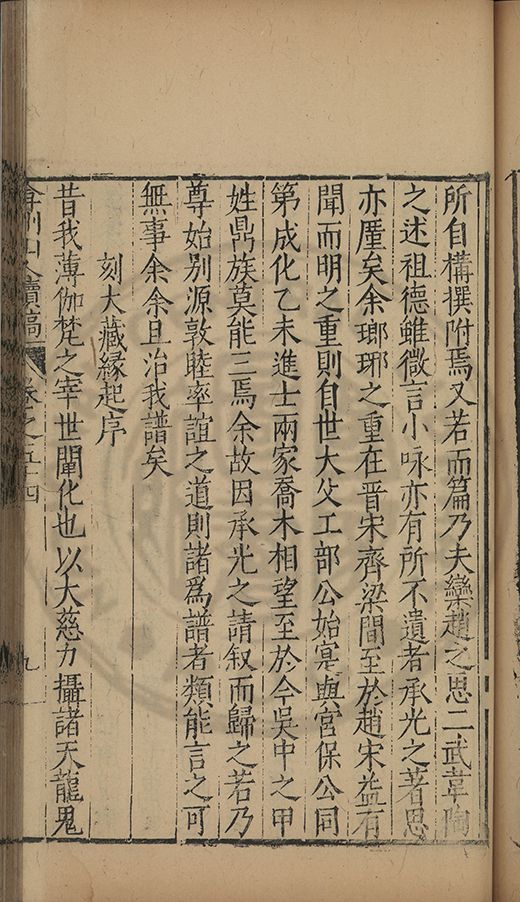 所自構撰附焉又若而篇乃夫欒趙之思二武韋陶
之述祖德雖微言小咏亦有所不遺者承光之著思
亦厪矣余瑯琊之重在晋宋齊梁間至於趙宋益有
聞而明之重則自世大父工部公始寔與宮保公同
第成化乙未進士兩家喬木相望至於今吳中之甲
姓鼎族莫能三焉余故因承光之請叙而歸之若乃
尊始别源敦睦率誼之道則諸爲譜者類能言之可
無事余余且治我譜矣
刻大藏緣起序
昔我薄伽梵之宰世闡化也以大慈力攝諸天龍鬼
弇州山人續稿 卷之五十四
九